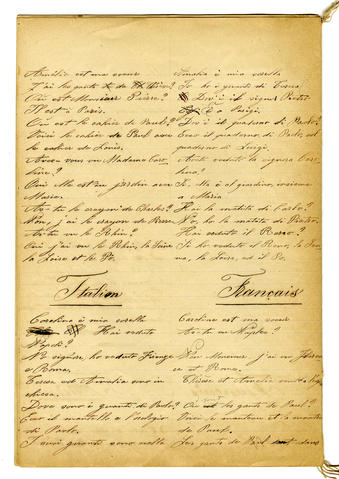 Amélie est ma soeur
J'ai les gants de
Où est Monsieur Pierre?
Il est à Paris.
Où est le cahier de Paul?
Voici le cahier de Paul avec
le cahier de Louis.
Avez-vous vu Madame Caro
line?
Oui Elle est au jardin avec
Maria.
As-tu le crayon de Charles?
Non, j'ai le crayon de Pierre.
As-tu vu le Rhin?
Oui j'ai vu le Rhin, la Seine
la Loire et le Pô.
Amalia è mia sorella
Io ho i guanti di
Dov'è il signor Pietro
È a Parigi.
Dov'è il quaderno di Paolo?
Ecco il quaderno di Paolo, col
quaderno di Luigi.
Avete veduto la signora Caro
lina?
Si, Ella è al giardino, insieme
a Maria
Hai la matita di Carlo?
No, ho la matita di Pietro.
Hai veduto il Reno?
Si ho veduto il Reno, la Sen
na, la Loira, ed il Po.
Italien
Français
Carolina è mia sorella
Hai veduto
Napoli?
No signore, ho veduto Firenze
e Roma.
ed Amalia sono in
chiesa.
Dove sono i guanti di Paolo?
Ecco il mantello e l'orologio
di Paolo.
I miei guanti sono nella
Caroline est ma soeur
As-tu vu Naples?
Non Monsieur j'ai vu
ce et Rome.
et Amélie sont à
Où sont les gants de Paul?
Voici le manteau et la montre
de Paul.
Les gants de Paul sont dans